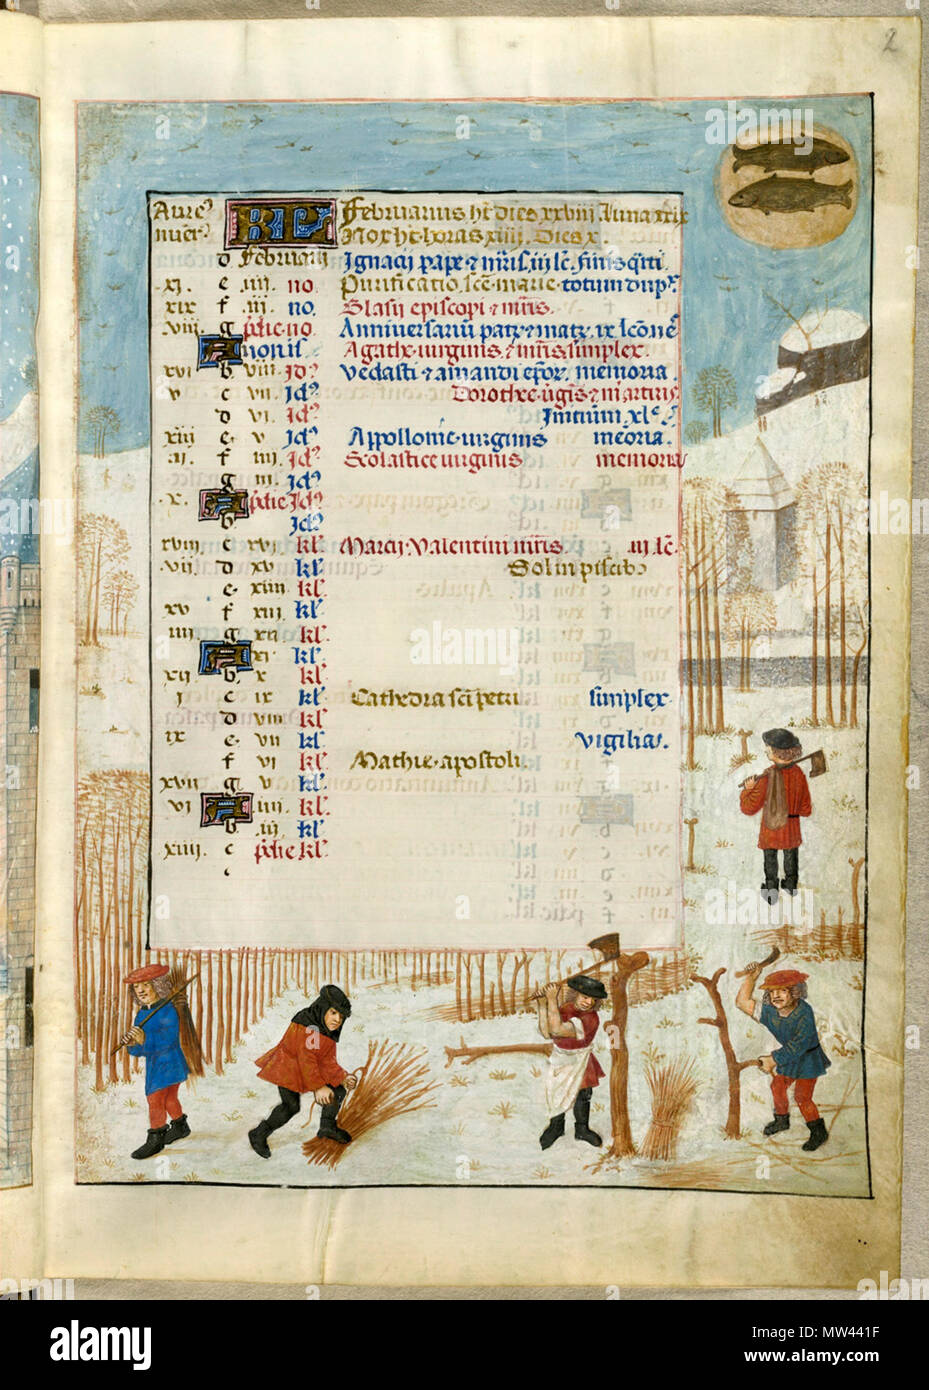 2
Aure⁹ KL Februarius ht dies xxviii luna xxix
nuer⁹ Nox ht horas xiiii. Dies x.
d Februarii Ignacii pape ⁊ mris, iii lc. finis qiti
.xi. e .iiii. no. Purificatio. sce. marie. totum dup.
xix f .iii. no. Blasii episcopi ⁊ mris.
viii. g pdie. no. Anniversariu patz ⁊ matz. ix. lcone
A nonis Agathe. virginis. ⁊ mris simplex.
xvi b viii. Id⁹ Vedasti ⁊ amandi epor. memoria
v c vii. Id⁹ Dorothee. vgis ⁊ martiris
d vi. Id⁹ Initium xl.
xiii e. v Id⁹ Appollonie. virginis memoria.
.ii. f iiii Id⁹ Scolastice virginis memoria
g iii. Id⁹
.x. A pdie Id⁹
b. Id⁹
xviii c xvi kl. Marcii. Valentini mris. iii lc.
vii d xv kl. Sol in piscibz
e xiiii kl.
xv f xiii kl.
iiii g xii kl.
A xi. kl.
xii b x kl.
i c ix kl. Cathedra sci petri simplex
d viii kl.
ix e. vii kl. vigilia.
f vi kl. Mathie. apostoli.
xvii g v kl.
vi A iiii kl.
b .iii. kl.
xiiii. c pdie kl.
c
a
alamy
Image ID: MW441F
www.alamy.com